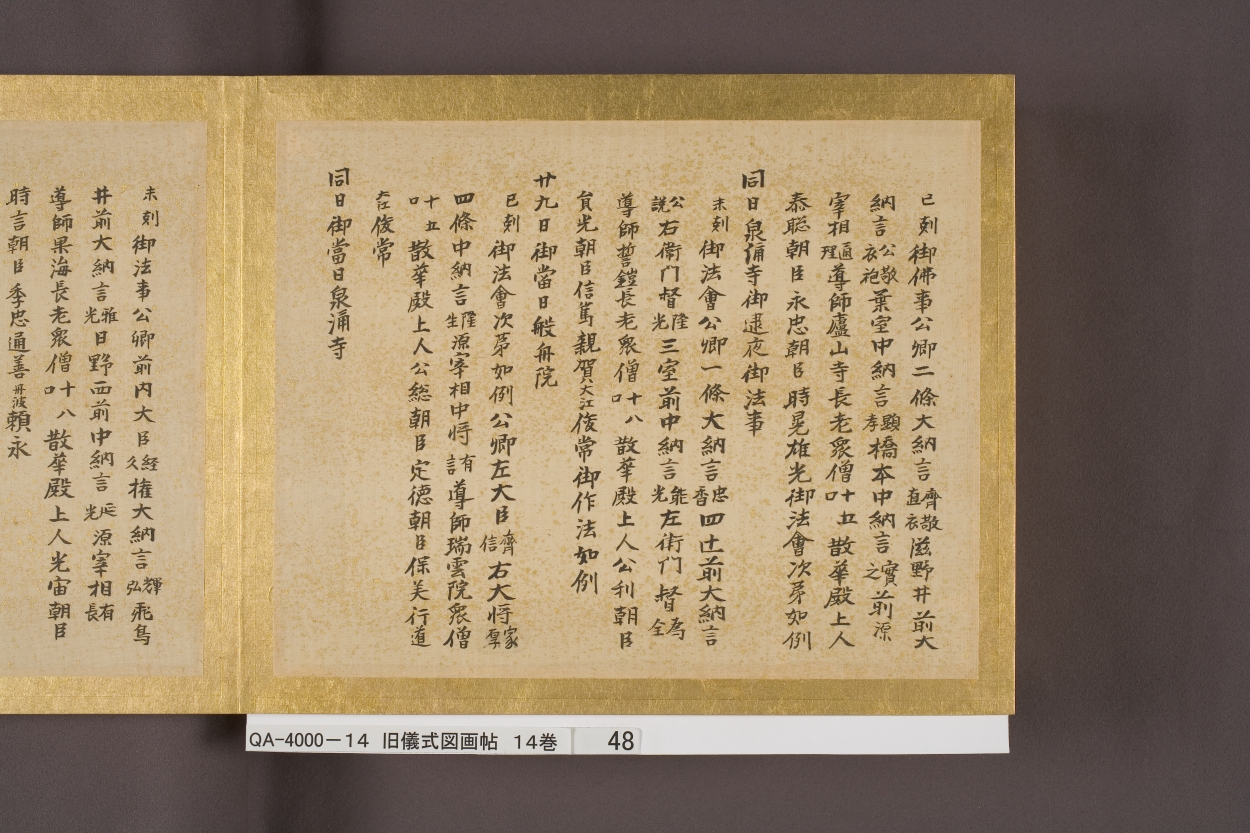 巳刻御佛事公卿二條大納言齊敬直衣滋野井前大
納言公敬衣袍葉室中納言顕孝橋本中納言實之前源
宰相通理導師廬山寺長老衆僧十五口散華殿上人
泰聡朝臣永忠朝臣時晃雄光御法會次第如例
同日泉涌寺御逮夜御法事
未刻御法會公卿一條大納言忠香四辻前大納言
公説右衛門督隆光三室前中納言能光左衛門督為全
導師誓鎧長老衆僧十八口散華殿上人公利朝臣
貟光朝臣信篤親賀大江俊常御作法如例
廿九日御當日般舟院
巳刻御法會次第如例公卿左大臣齊信右大将家厚
四條中納言隆生源宰相中将有言導師瑞雲院衆僧
十五口散華殿上人公総朝臣定徳朝臣保美行道
大江俊常
同日御當日泉涌寺
未刻御法事公卿前内大臣経久権大納言輝弘飛鳥
井前大納言雅光日野西前中納言延光源宰相有長
導師果海長老衆僧十八口散華殿上人光宙朝臣
時言朝臣季忠通善丹波頼永
QA-4000-14 旧儀式図画帖 14巻 48